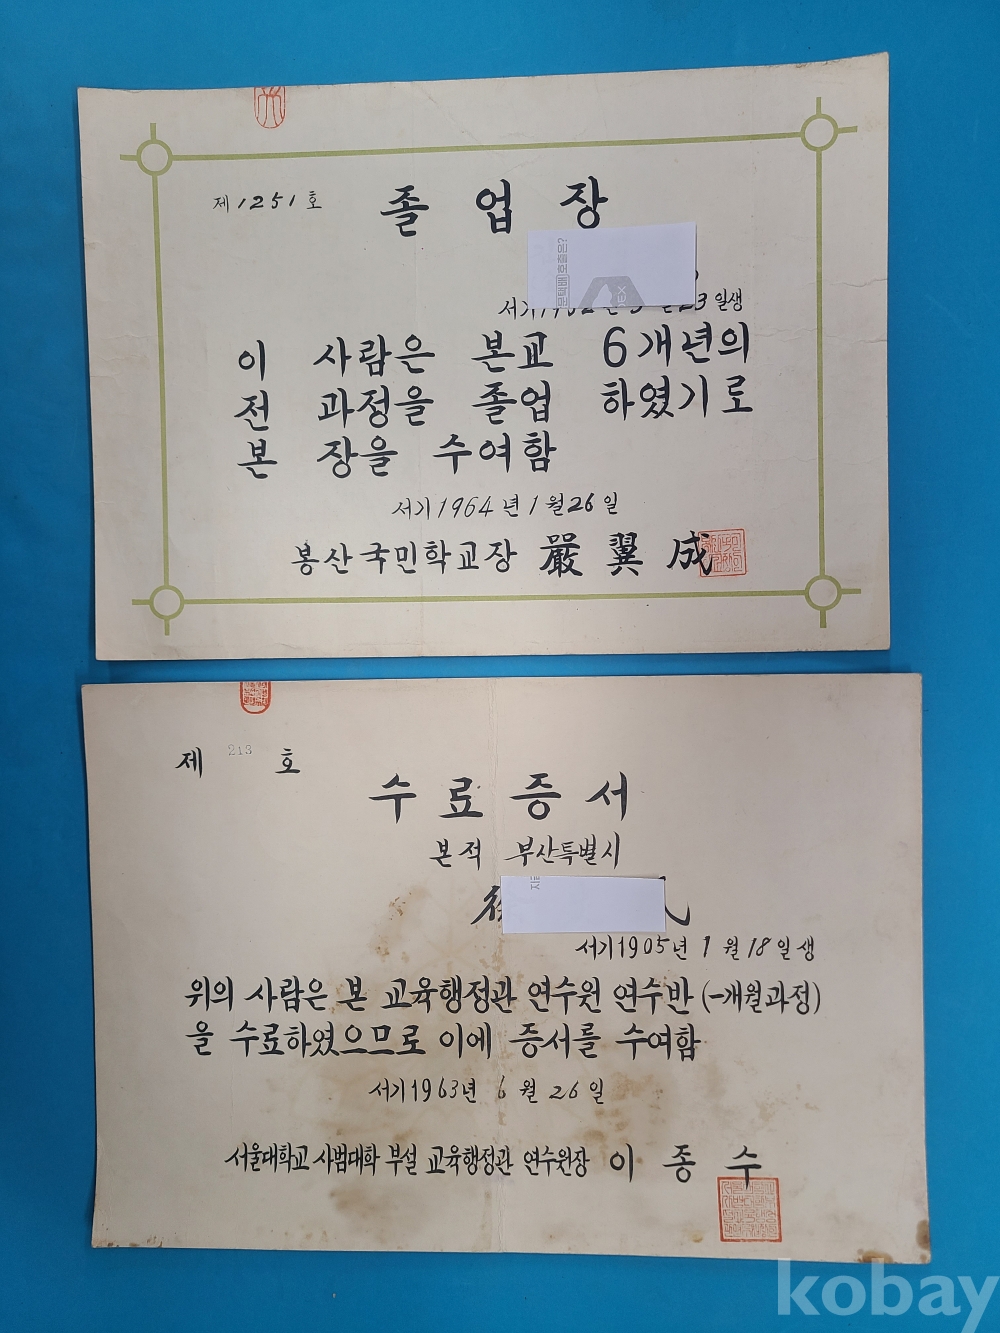 제 1251 호
졸 업 장
서기19
23 일생
이 사람은 본교 6개년의
전 과정을 졸업 하였기로
본 장을 수여함
서기 1964 년 1 월 26 일
봉산국민학교장 嚴 翼 成
제 213 호
수 료 증 서
본적 부산특별시
서기1905년 1 월 18 일생
위의 사람은 본 교육행정관 연수원 연수반 (一개월과정)
을 수료하였으므로 이에 증서를 수여함
서기1963년 6 월 26 일
서울대학교 사범대학 부설 교육행정관 연수원장 이 종 수
kobay